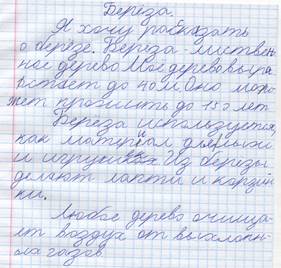 Береза.
Я хочу рассказать
о березе. Береза - листвен-
ное дерево. Мое дерево выра-
встает до 40 м. Оно мо-
жет прожить до 150 лет
Береза используется,
как материал
и игрушек. Из березы
делают лапти и корзин-
ки.
Любое дерево очища-
ет воздух от выхлопн-
ых газов